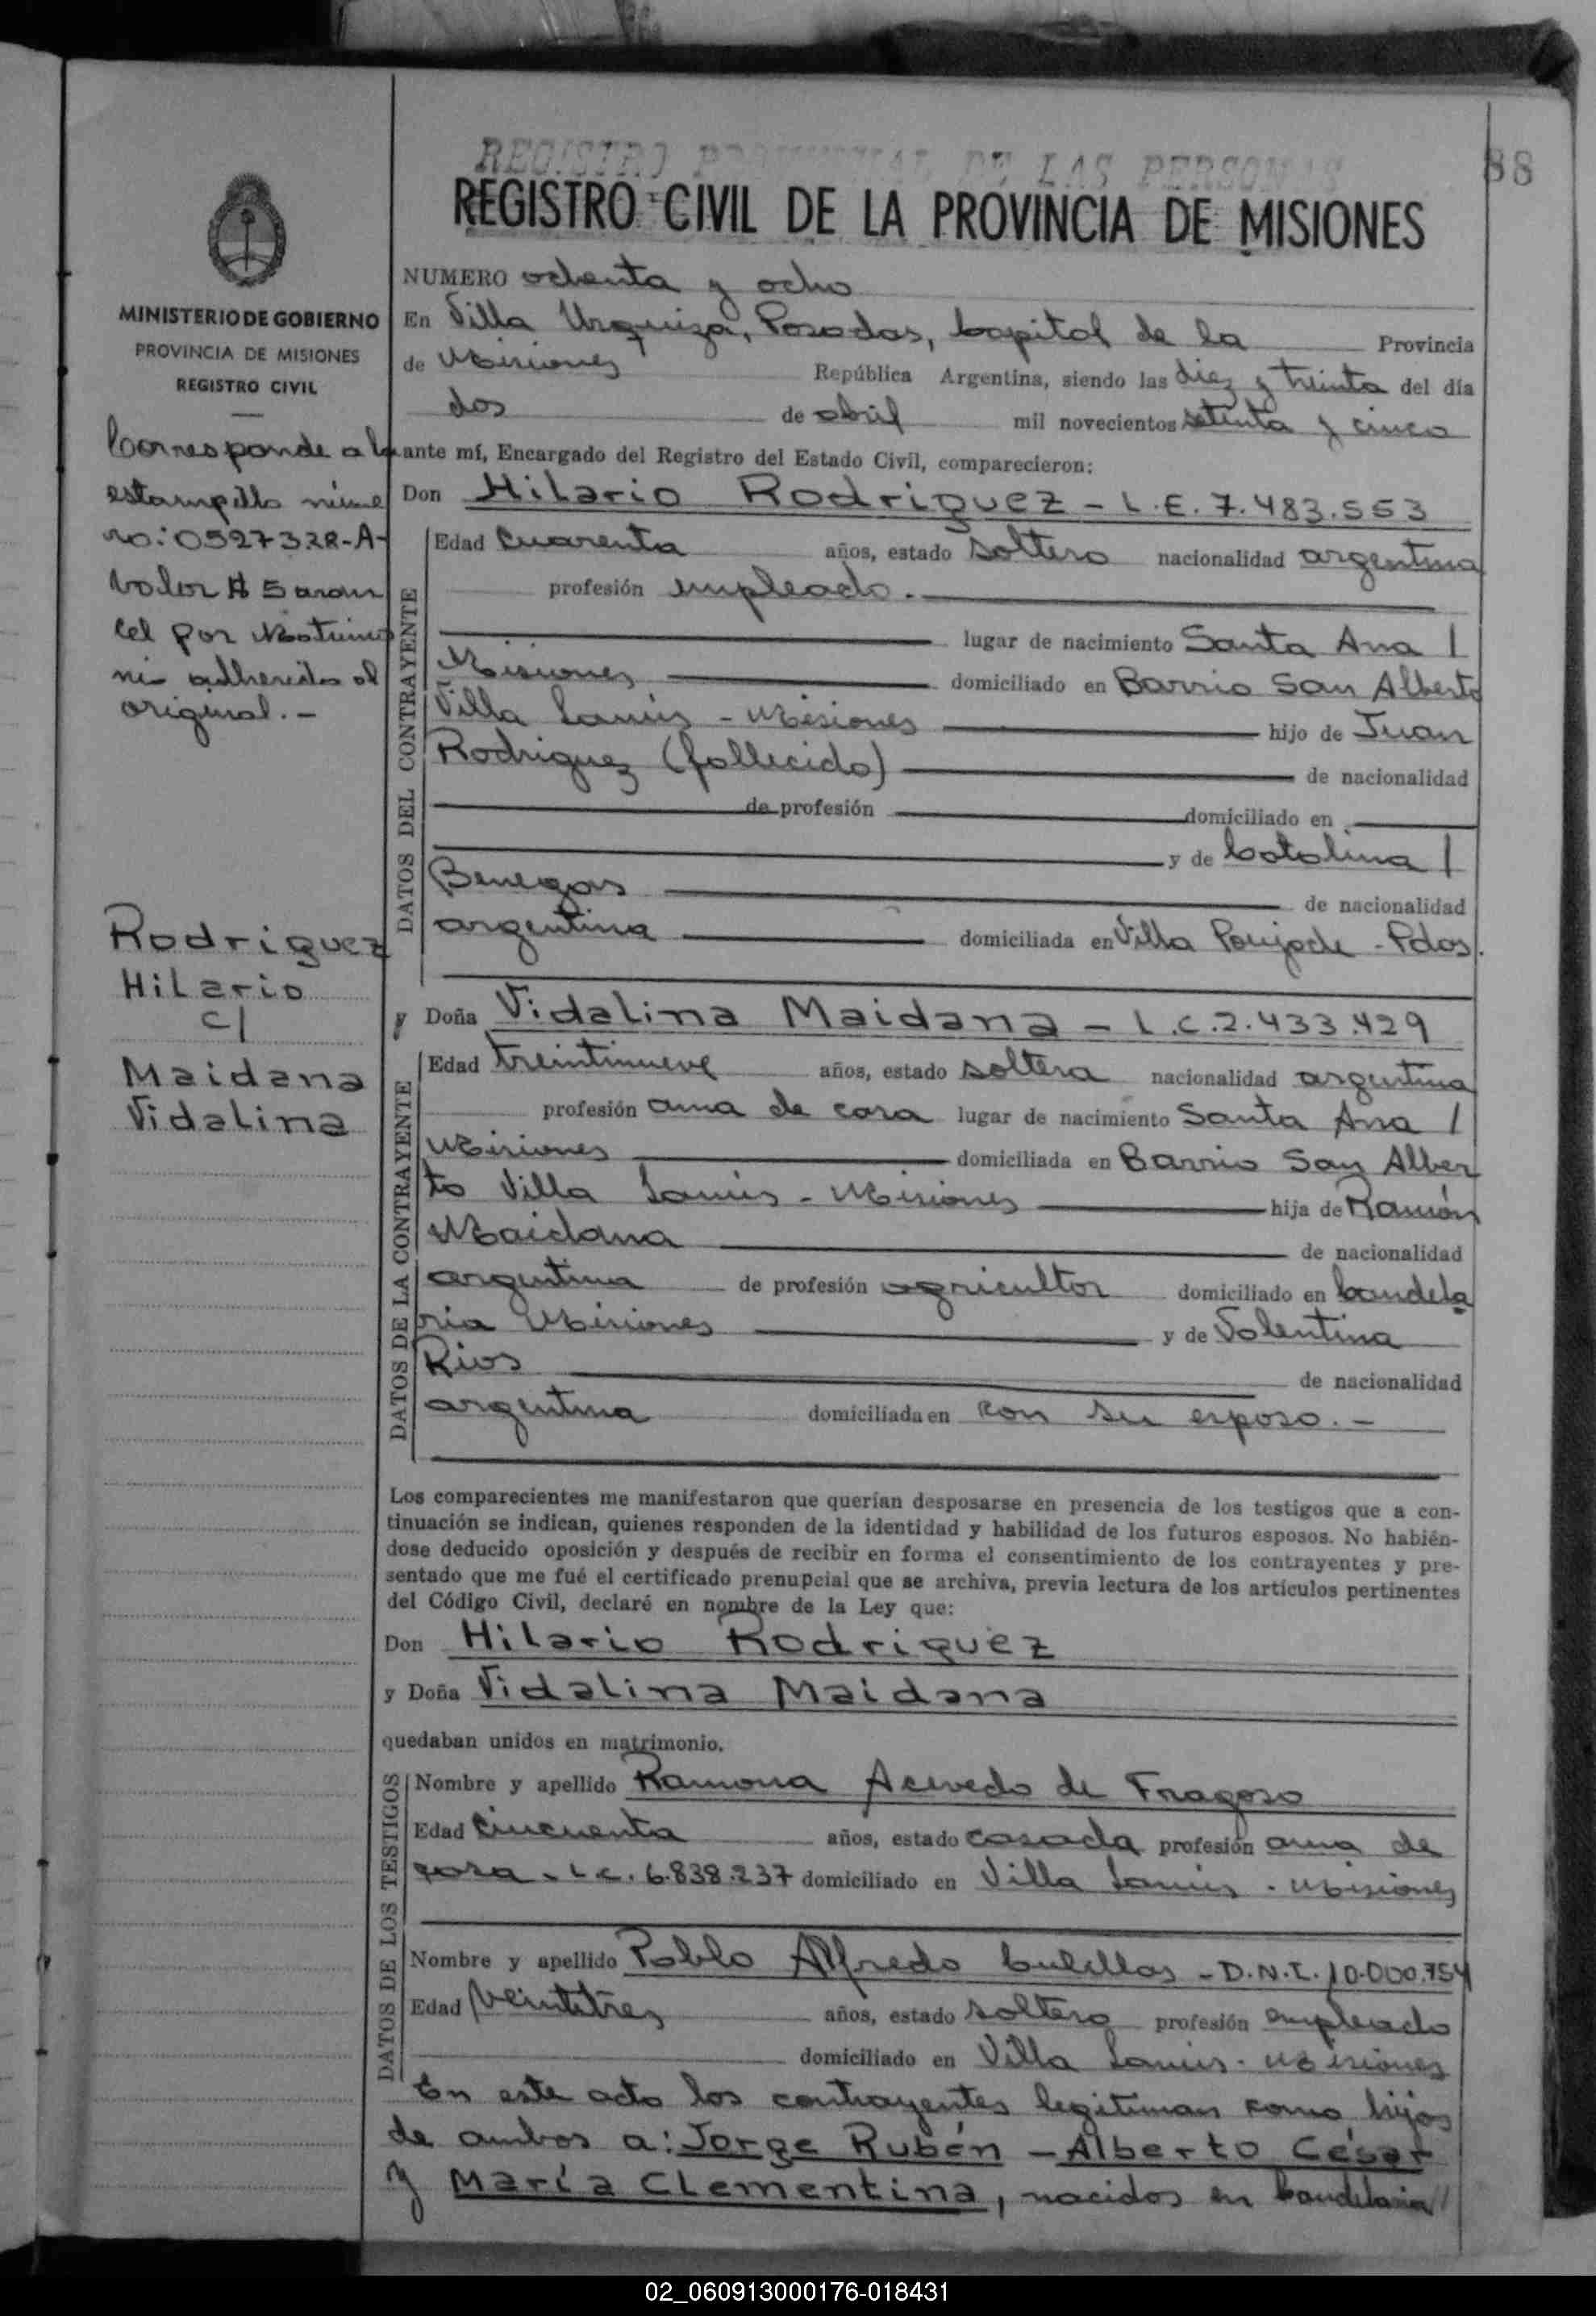 REGISTRO PROVINCIAL DE LAS PERSONAS
88
REGISTRO CIVIL DE LA PROVINCIA DE MISIONES
MINISTERIO DE GOBIERNO
PROVINCIA DE MISIONES
REGISTRO CIVIL
Corresponde a la
estampilla núme
ro: 0527328-A-
valor $ 5 aran
cel por Matrimo
nio adherida al
original.-
Rodriguez
Hilario
c/
Maidana
Vidalina
NUMERO ochenta y ocho
En Villa Urquiza, Posadas, Capital de la Provincia
de Misiones República Argentina, siendo las diez y treinta del día
dos de abril mil novecientos setenta y cinco
ante mí, Encargado del Registro del Estado Civil, comparecieron:
Don Hilario Rodriguez - L.E. 7.483.553
DATOS DEL CONTRAYENTE
Edad Cuarenta años, estado soltero nacionalidad argentina
profesión empleado.
lugar de nacimiento Santa Ana /
Misiones domiciliado en Barrio San Alberto
Villa Lanús - Misiones hijo de Juan
Rodriguez (fallecido) de nacionalidad
de profesión domiciliado en
y de Catalina /
Benegas de nacionalidad
argentina domiciliada en Villa Poujade - Pdas.
y Doña Vidalina Maidana - L.C. 2.433.429
DATOS DE LA CONTRAYENTE
Edad treintinueve años, estado soltera nacionalidad argentina
profesión ama de casa lugar de nacimiento Santa Ana /
Misiones domiciliada en Barrio San Alber
to Villa Lanús - Misiones hija de Ramón
Maidana de nacionalidad
argentina de profesión agricultor domiciliado en Candela
ria Misiones y de Valentina
Rios de nacionalidad
argentina domiciliada en con su esposo.-
Los comparecientes me manifestaron que querían desposarse en presencia de los testigos que a con-
tinuación se indican, quienes responden de la identidad y habilidad de los futuros esposos. No habién-
dose deducido oposición y después de recibir en forma el consentimiento de los contrayentes y pre-
sentado que me fué el certificado prenupcial que se archiva, previa lectura de los artículos pertinentes
del Código Civil, declaré en nombre de la Ley que:
Don Hilario Rodriguez
y Doña Vidalina Maidana
quedaban unidos en matrimonio.
DATOS DE LOS TESTIGOS
Nombre y apellido Ramona Acevedo de Fragoso
Edad Cincuenta años, estado casada profesión ama de
casa - L.C. 6.838.237 domiciliado en Villa Lanús - Misiones
Nombre y apellido Pablo Alfredo Cubillas - D.N.I. 10.000.754
Edad Veintitres años, estado soltero profesión empleado
domiciliado en Villa Lanús - Misiones
En este acto los contrayentes legitiman como hijos
de ambos a: Jorge Rubén - Alberto César
y María Clementina, nacidos en Candelaria //
02_060913000176-018431